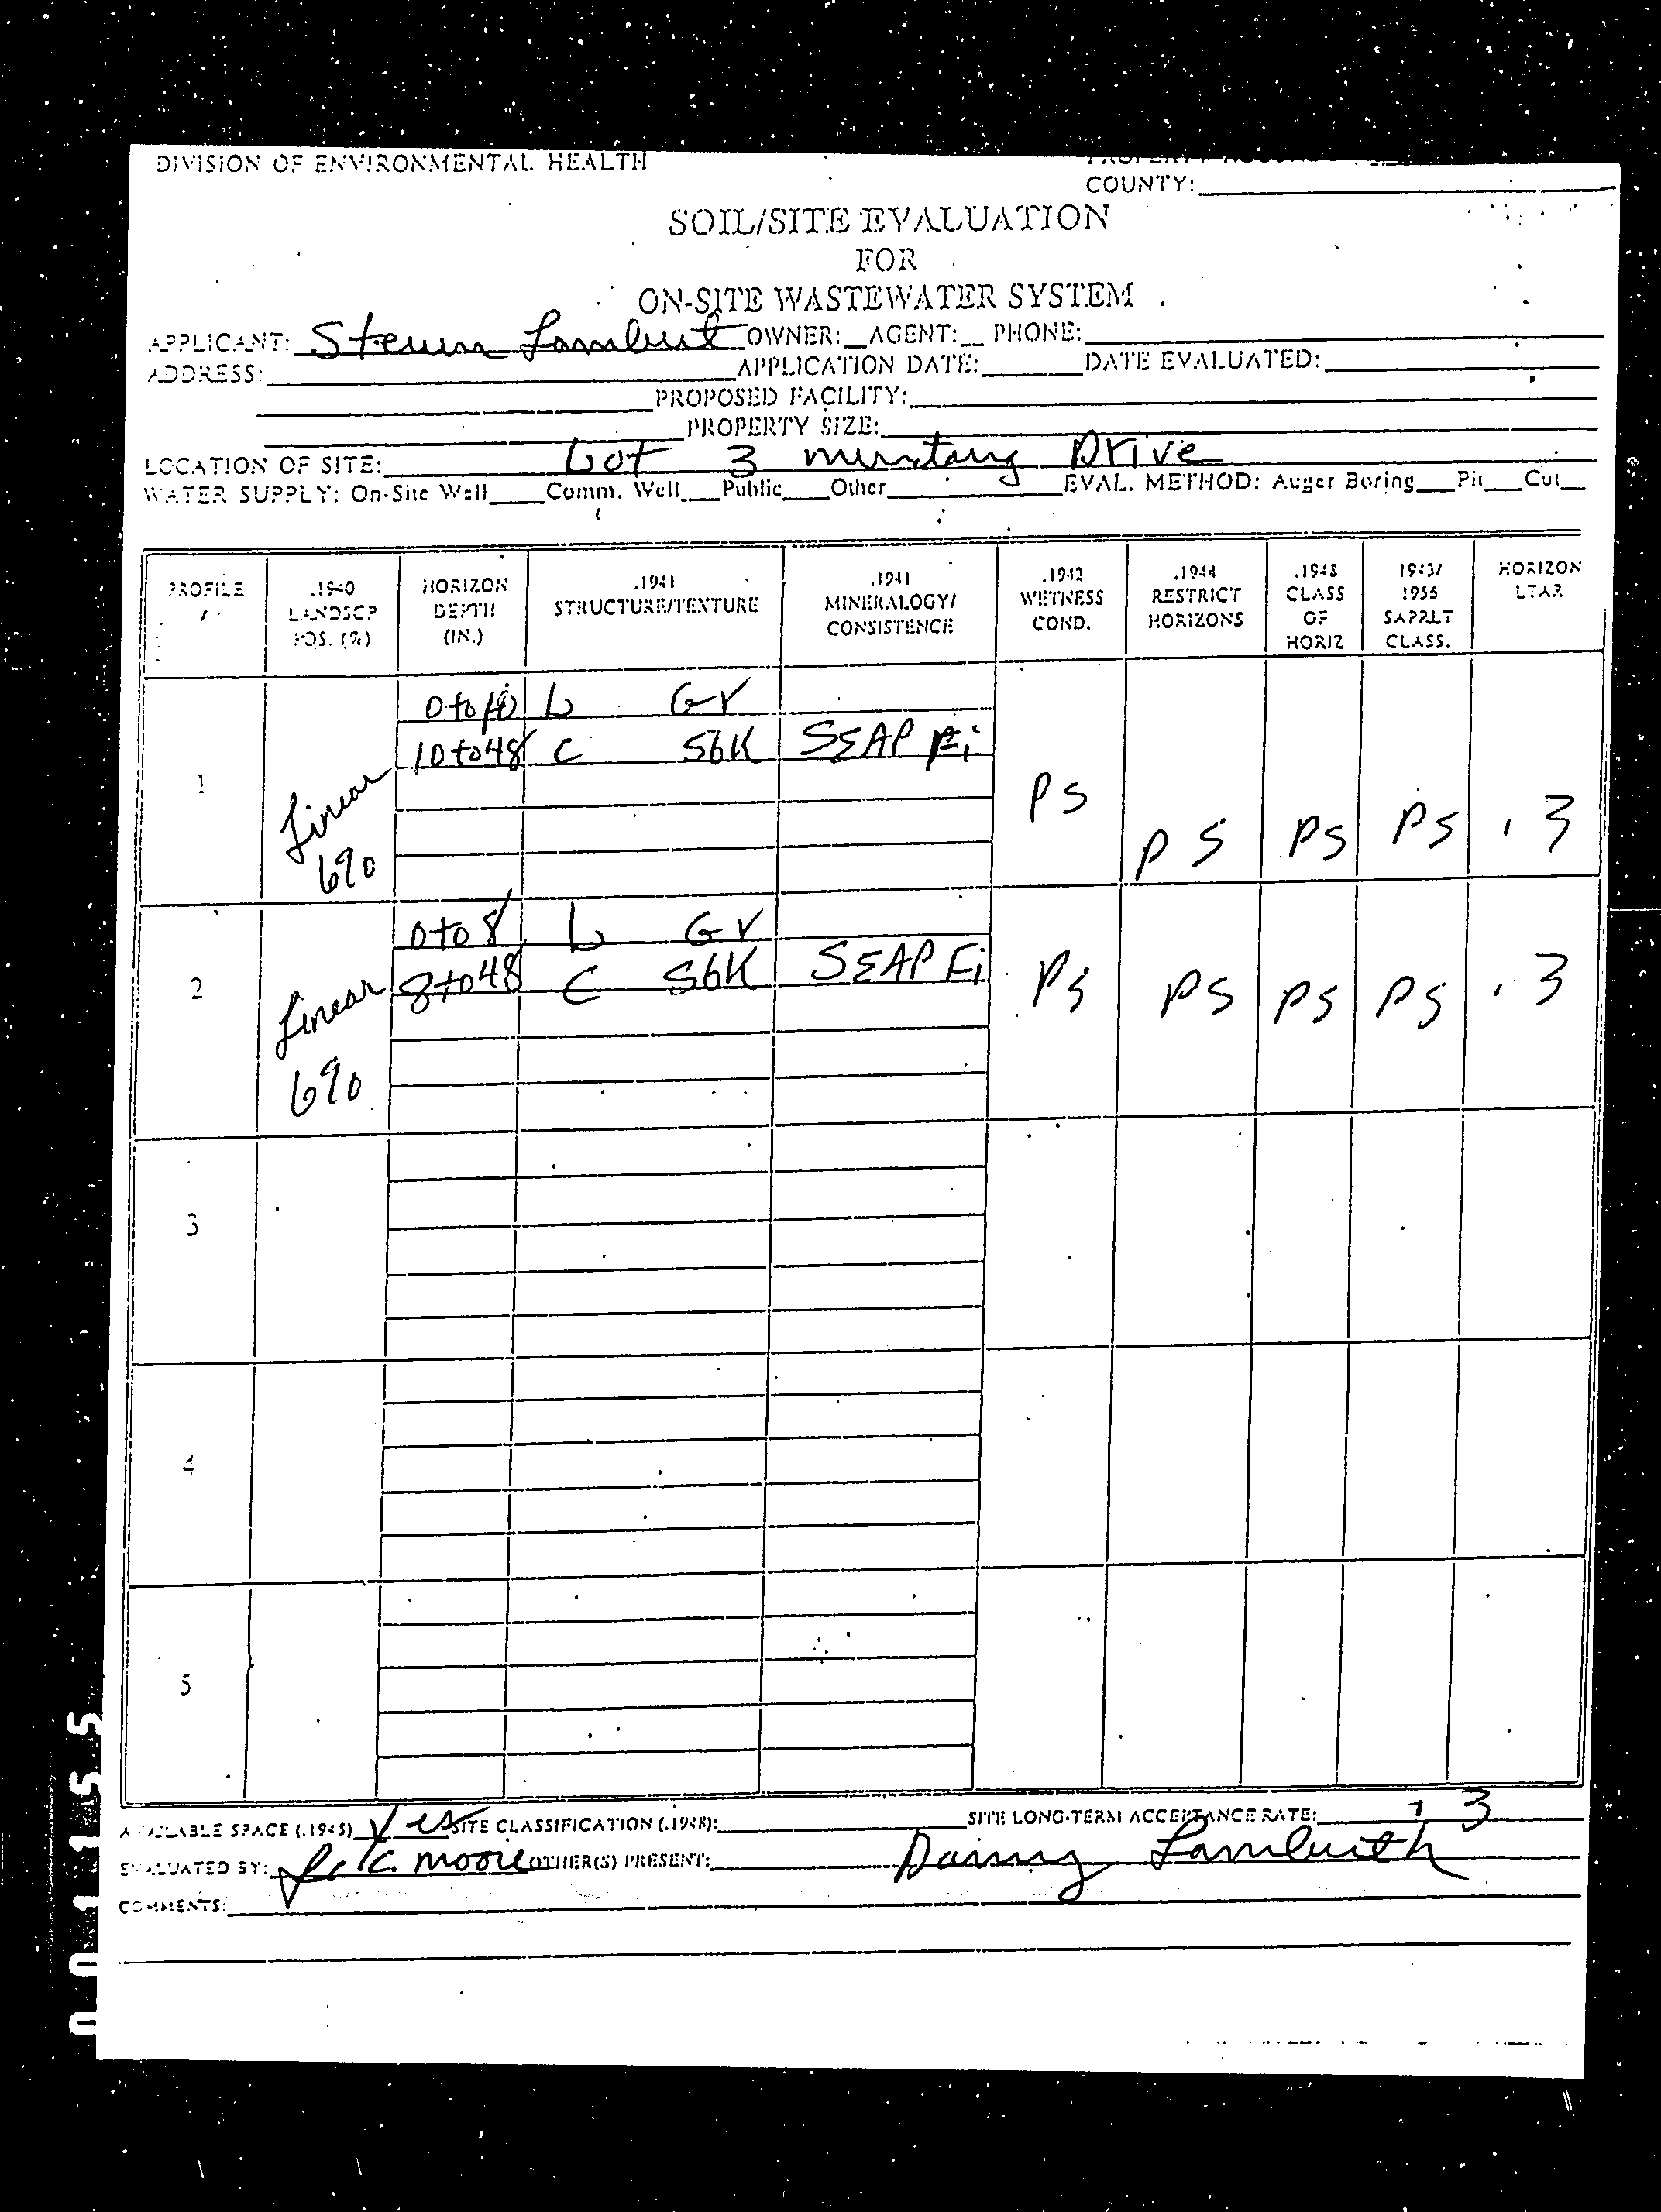 DIVISION OF ENVIRONMENTAL HEALTH
COUNTY:
SOIL/SITE EVALUATION
FOR
ON-SITE WASTEWATER SYSTEM
APPLICANT: Steven Lambert OWNER: AGENT: PHONE:
ADDRESS: APPLICATION DATE: DATE EVALUATED:
PROPOSED FACILITY:
PROPERTY SIZE:
LOCATION OF SITE: Lot 3 mustang Drive
WATER SUPPLY: On-Site Well Comm. Well Public Other EVAL. METHOD: Auger Boring Pit Cut
PROFILE .1940 LANDSCP POS. (%) HORIZON DEPTH (IN.) .1941 STRUCTURE/TEXTURE .1941 MINERALOGY/ CONSISTENCE .1942 WETNESS COND. .1944 RESTRICT HORIZONS .1945 CLASS OF HORIZ 1943/ 1956 SAPRLT CLASS. HORIZON LTAR
0 to 10 L Gr
10 to 48 C SbK SEAP Fi
1 Linear 6% PS PS PS PS .3
0 to 8 L Gr
8 to 48 C SbK SEAP Fi
2 Linear 6% PS PS PS PS .3
3
4
5
AVAILABLE SPACE (.1945) Yes SITE CLASSIFICATION (.1948): SITE LONG-TERM ACCEPTANCE RATE: .3
EVALUATED BY: moore OTHER(S) PRESENT: Danny Lambeith
COMMENTS:
001155